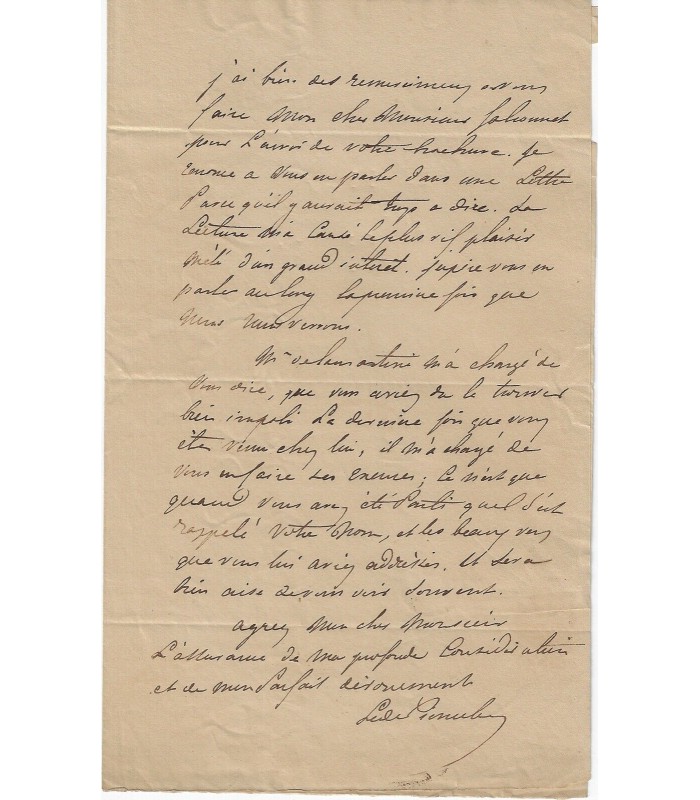 j'ai bien des remerciemens à vous
faire mon cher Monsieur
pour L'envoi de votre brochure. Je
renonce a Vous en parler dans une Lettre
Parce qu'il y aurait trop a dire. La
Lecture m'a Causé le plus vif plaisir
mêlé d'un grand interet. vous en
parler au long la premiere fois que
nous nous verrons.
Mr de lamartine m'a chargé de
Vous dire, que vous aviez du le trouver
bien impoli La derniere fois que vous
étes venu chez lui, il m'a chargé de
Vous en faire ses excuses; Ce n'est que
quand vous avez été Parti quil s'est
rappelé votre nom, et les beaux vers
que vous lui aviez addréssés. Il sera
bien aise de vous voir souvent.
agreez mon cher Monsieur
L'assurance de ma profonde Considération
et de mon Parfait dévouement